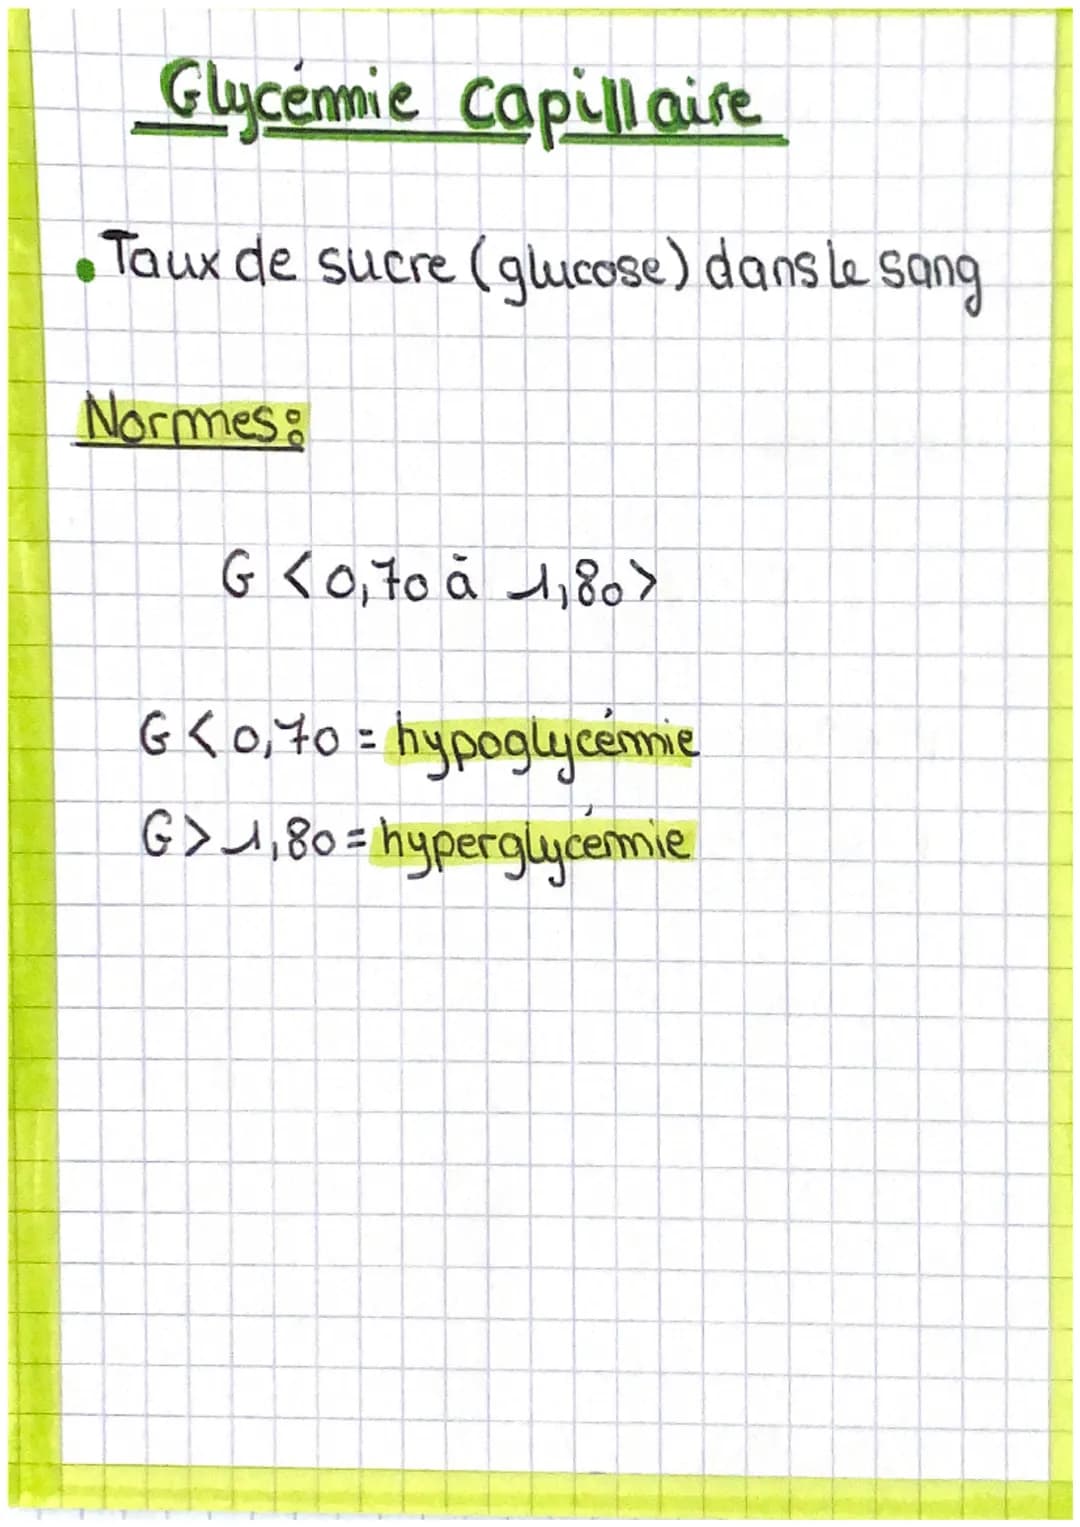 Glycémie Capillaire
• Taux de sucre (glucose) dans le sang
Normes:
G <0,70 à 1,80>
G < 0,70 = hypoglycémie
G > 1,80 = hyperglycémie